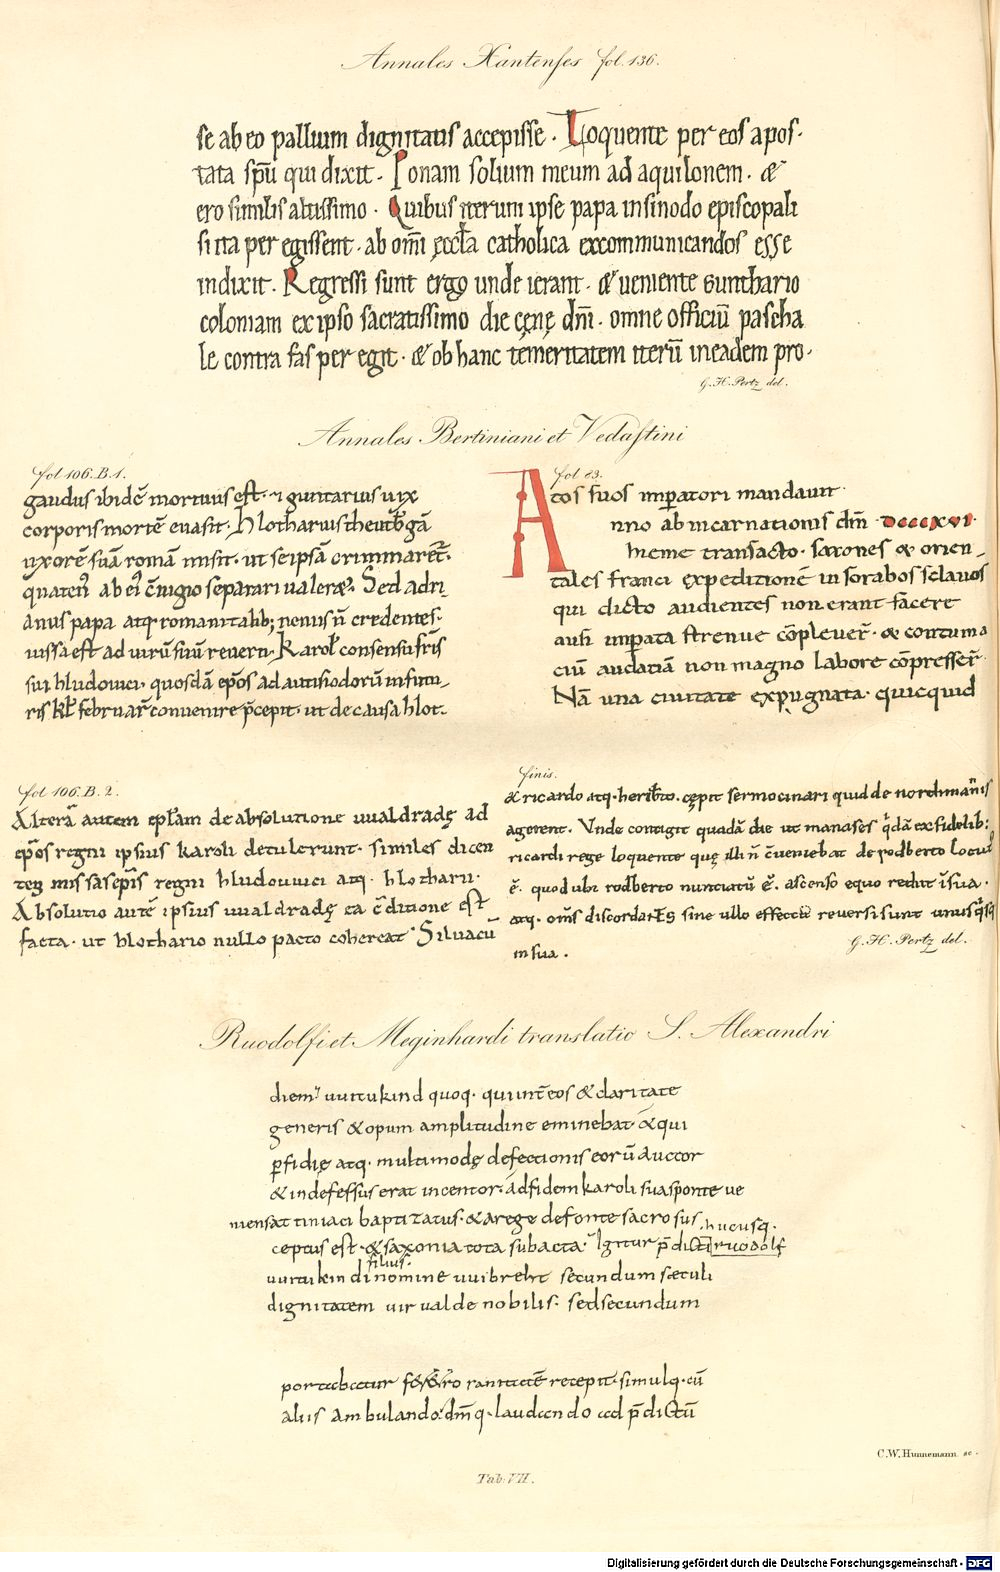 Annales Xantenses fol. 136.
se ab eo pallium dignitatis accepisse · Loquente per eos apos-
tata sp̄u qui dixit · Ponam solium meum ad aquilonem · &
ero similis altissimo · Quibus iterum ipse papa in sinodo episcopali
si ita per egissent · ab om̄i ęcc̄la catholica excommunicandos esse
indixit · Regressi sunt ergo unde ierant · & veniente Gunthario
coloniam ex ipso sacratissimo die cęnę dn̄i · omne officiū pascha
le contra fas per egit · & ob hanc temeritatem iterū in eadem pro-
G. H. Pertz del.
Annales Bertiniani et Vedastini
fol 106. B. 1.
gaudus ibidē mortuus est · ⁊ guntarius uix
corporis mortē euasit · Hlotharius theutb̄gā
uxorē suā romā misit · ut se ipsā criminaret᷑ ·
quaten᷒ ab ei᷒ c̄iugio separari ualeret · Sed adri
anus papa atq; romanitatib; nenus n̄ credentes ·
iussa est ad uirū suū reuerti · Karol̄ consensu fr̄is
sui hludouici · quosdā ep̄os ad autisiodorū in futu-
ris kl̄ februar̄ conuenire p̄cepit · ut de causa hlot-
fol 83.
Atos suos imꝑatori mandauit ·
nno ab incarnationis dn̄i · DCCCXVI ·
hieme transacto · saxones & orien-
tales franci expeditionē in sorabos sclauos
qui dicto audientes non erant facere
ausi imꝑata strenue cōpleuer̄ · & contuma
ciū audatiā non magno labore cōpresser̄ ·
Nā una ciuitate expugnata · quicquid
fol 106. B. 2.
Alterā autem epl̄am de absolutione uualdradę ad
ep̄os regni ipsius karoli detulerunt · similes dicen
teq; missas ep̄is regni hludouuici atq; hlotharii ·
Absolutio autē ipsius uualdradę ea c̄ditione est
facta · ut hlothario nullo pacto cohereat · Siluacū
finis.
& ricardo atq; herib̄to · cępit sermocinari quid de nordmannis
agerent · Vnde contigit quadā die ut manases q̄dā ex fidelib;
ricardi rege loquente quę illi n̄ c̄ueniebat de rodberto locut᷒
ē · quod ubi rodberto nunciatū ē · ascenso equo rediit ī sua ·
atq; om̄s discordantes sine ullo effectu reuersi sunt unusq̄sq;
in sua ·
G. H. Pertz del.
Ruodolfi et Meginhardi translatio S. Alexandri
diem᷒ uuitukind quoq; qui int̄ eos & claritate
generis & opum amplitudine eminebat · & qui
ꝑfidię atq; multimodę defectionis eorū auctor
& indefessus erat incentor · ad fidem karoli sua sponte ue
niens attiniaci baptizatus · & a rege de fonte sacro sus
hucusq;
ceptus est · & saxonia tota subacta · Igitur p̄dicti ruodolf
filius ·
uuitukindi nomine uuibreht secundum sæculi
dignitatem uir ualde nobilis · sed secundum
portabatur recepit · simulq; cū
aliis ambulando · dn̄mq; laudando ad p̄dictū
C. W. Hunnemann sc.
Tab. VII.
Digitalisierung gefördert durch die Deutsche Forschungsgemeinschaft - DFG